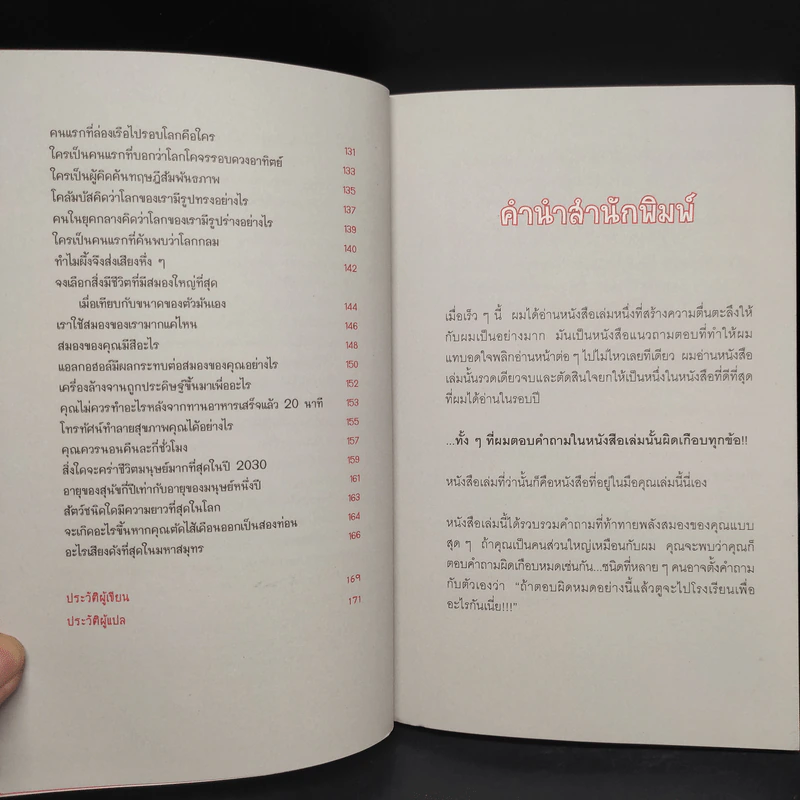 คนแรกที่ล่องเรือไปรอบโลกคือใคร 131
ใครเป็นคนแรกที่บอกว่าโลกโคจรรอบดวงอาทิตย์ 133
ใครเป็นผู้คิดค้นทฤษฎีสัมพันธภาพ 135
โคลัมบัสคิดว่าโลกของเรามีรูปทรงอย่างไร 137
คนในยุคกลางคิดว่าโลกของเรามีรูปร่างอย่างไร 139
ใครเป็นคนแรกที่ค้นพบว่าโลกกลม 140
ทำไมผึ้งจึงส่งเสียงหึ่ง ๆ 142
จงเลือกสิ่งมีชีวิตที่มีสมองใหญ่ที่สุด
เมื่อเทียบกับขนาดของตัวมันเอง 144
เราใช้สมองของเรามากแค่ไหน 146
สมองของคุณมีสีอะไร 148
แอลกอฮอล์มีผลกระทบต่อสมองของคุณอย่างไร 150
เครื่องล้างจานถูกประดิษฐ์ขึ้นมาเพื่ออะไร 152
คุณไม่ควรทำอะไรหลังจากทานอาหารเสร็จแล้ว 20 นาที 153
โทรทัศน์ทำลายสุขภาพคุณได้อย่างไร 155
คุณควรนอนคืนละกี่ชั่วโมง 157
สิ่งใดจะคร่าชีวิตมนุษย์มากที่สุดในปี 2030 159
อายุของสุนัขกี่ปีเท่ากับอายุของมนุษย์หนึ่งปี 161
สัตว์ชนิดใดมีความยาวที่สุดในโลก 163
จะเกิดอะไรขึ้นหากคุณตัดไส้เดือนออกเป็นสองท่อน 164
อะไรเสียงดังที่สุดในมหาสมุทร 166
ประวัติผู้เขียน 169
ประวัติผู้แปล 171
คำนำสำนักพิมพ์
เมื่อเร็ว ๆ นี้ ผมได้อ่านหนังสือเล่มหนึ่งที่สร้างความตื่นตะลึงให้
กับผมเป็นอย่างมาก มันเป็นหนังสือแนวถามตอบที่ทำให้ผม
แทบอดใจพลิกอ่านหน้าต่อ ๆ ไปไม่ไหวเลยทีเดียว ผมอ่านหนังสือ
เล่มนั้นรวดเดียวจบและตัดสินใจยกให้เป็นหนึ่งในหนังสือที่ดีที่สุด
ที่ผมได้อ่านในรอบปี
...ทั้ง ๆ ที่ผมตอบคำถามในหนังสือเล่มนั้นผิดเกือบทุกข้อ!!
หนังสือเล่มที่ว่านั้นก็คือหนังสือที่อยู่ในมือคุณเล่มนี้นี่เอง
หนังสือเล่มนี้ได้รวบรวมคำถามที่ท้าทายพลังสมองของคุณแบบ
สุด ๆ ถ้าคุณเป็นคนส่วนใหญ่เหมือนกับผม คุณจะพบว่าคุณก็
ตอบคำถามผิดเกือบหมดเช่นกัน...ชนิดที่หลาย ๆ คนอาจตั้งคำถาม
กับตัวเองว่า "ถ้าตอบผิดหมดอย่างนี้แล้วตูจะไปโรงเรียนเพื่อ
อะไรกันเนี่ย!!!"